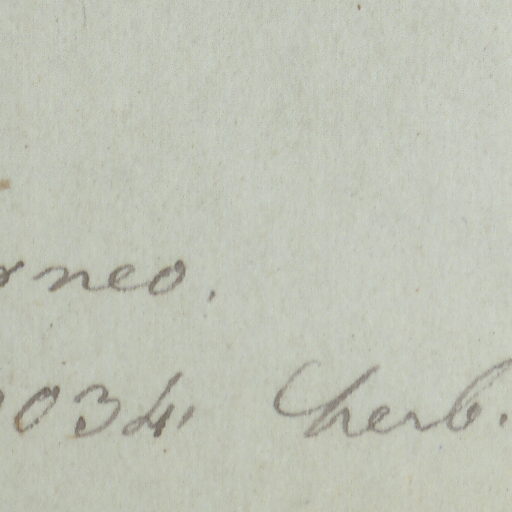 rneo.
034. herb.